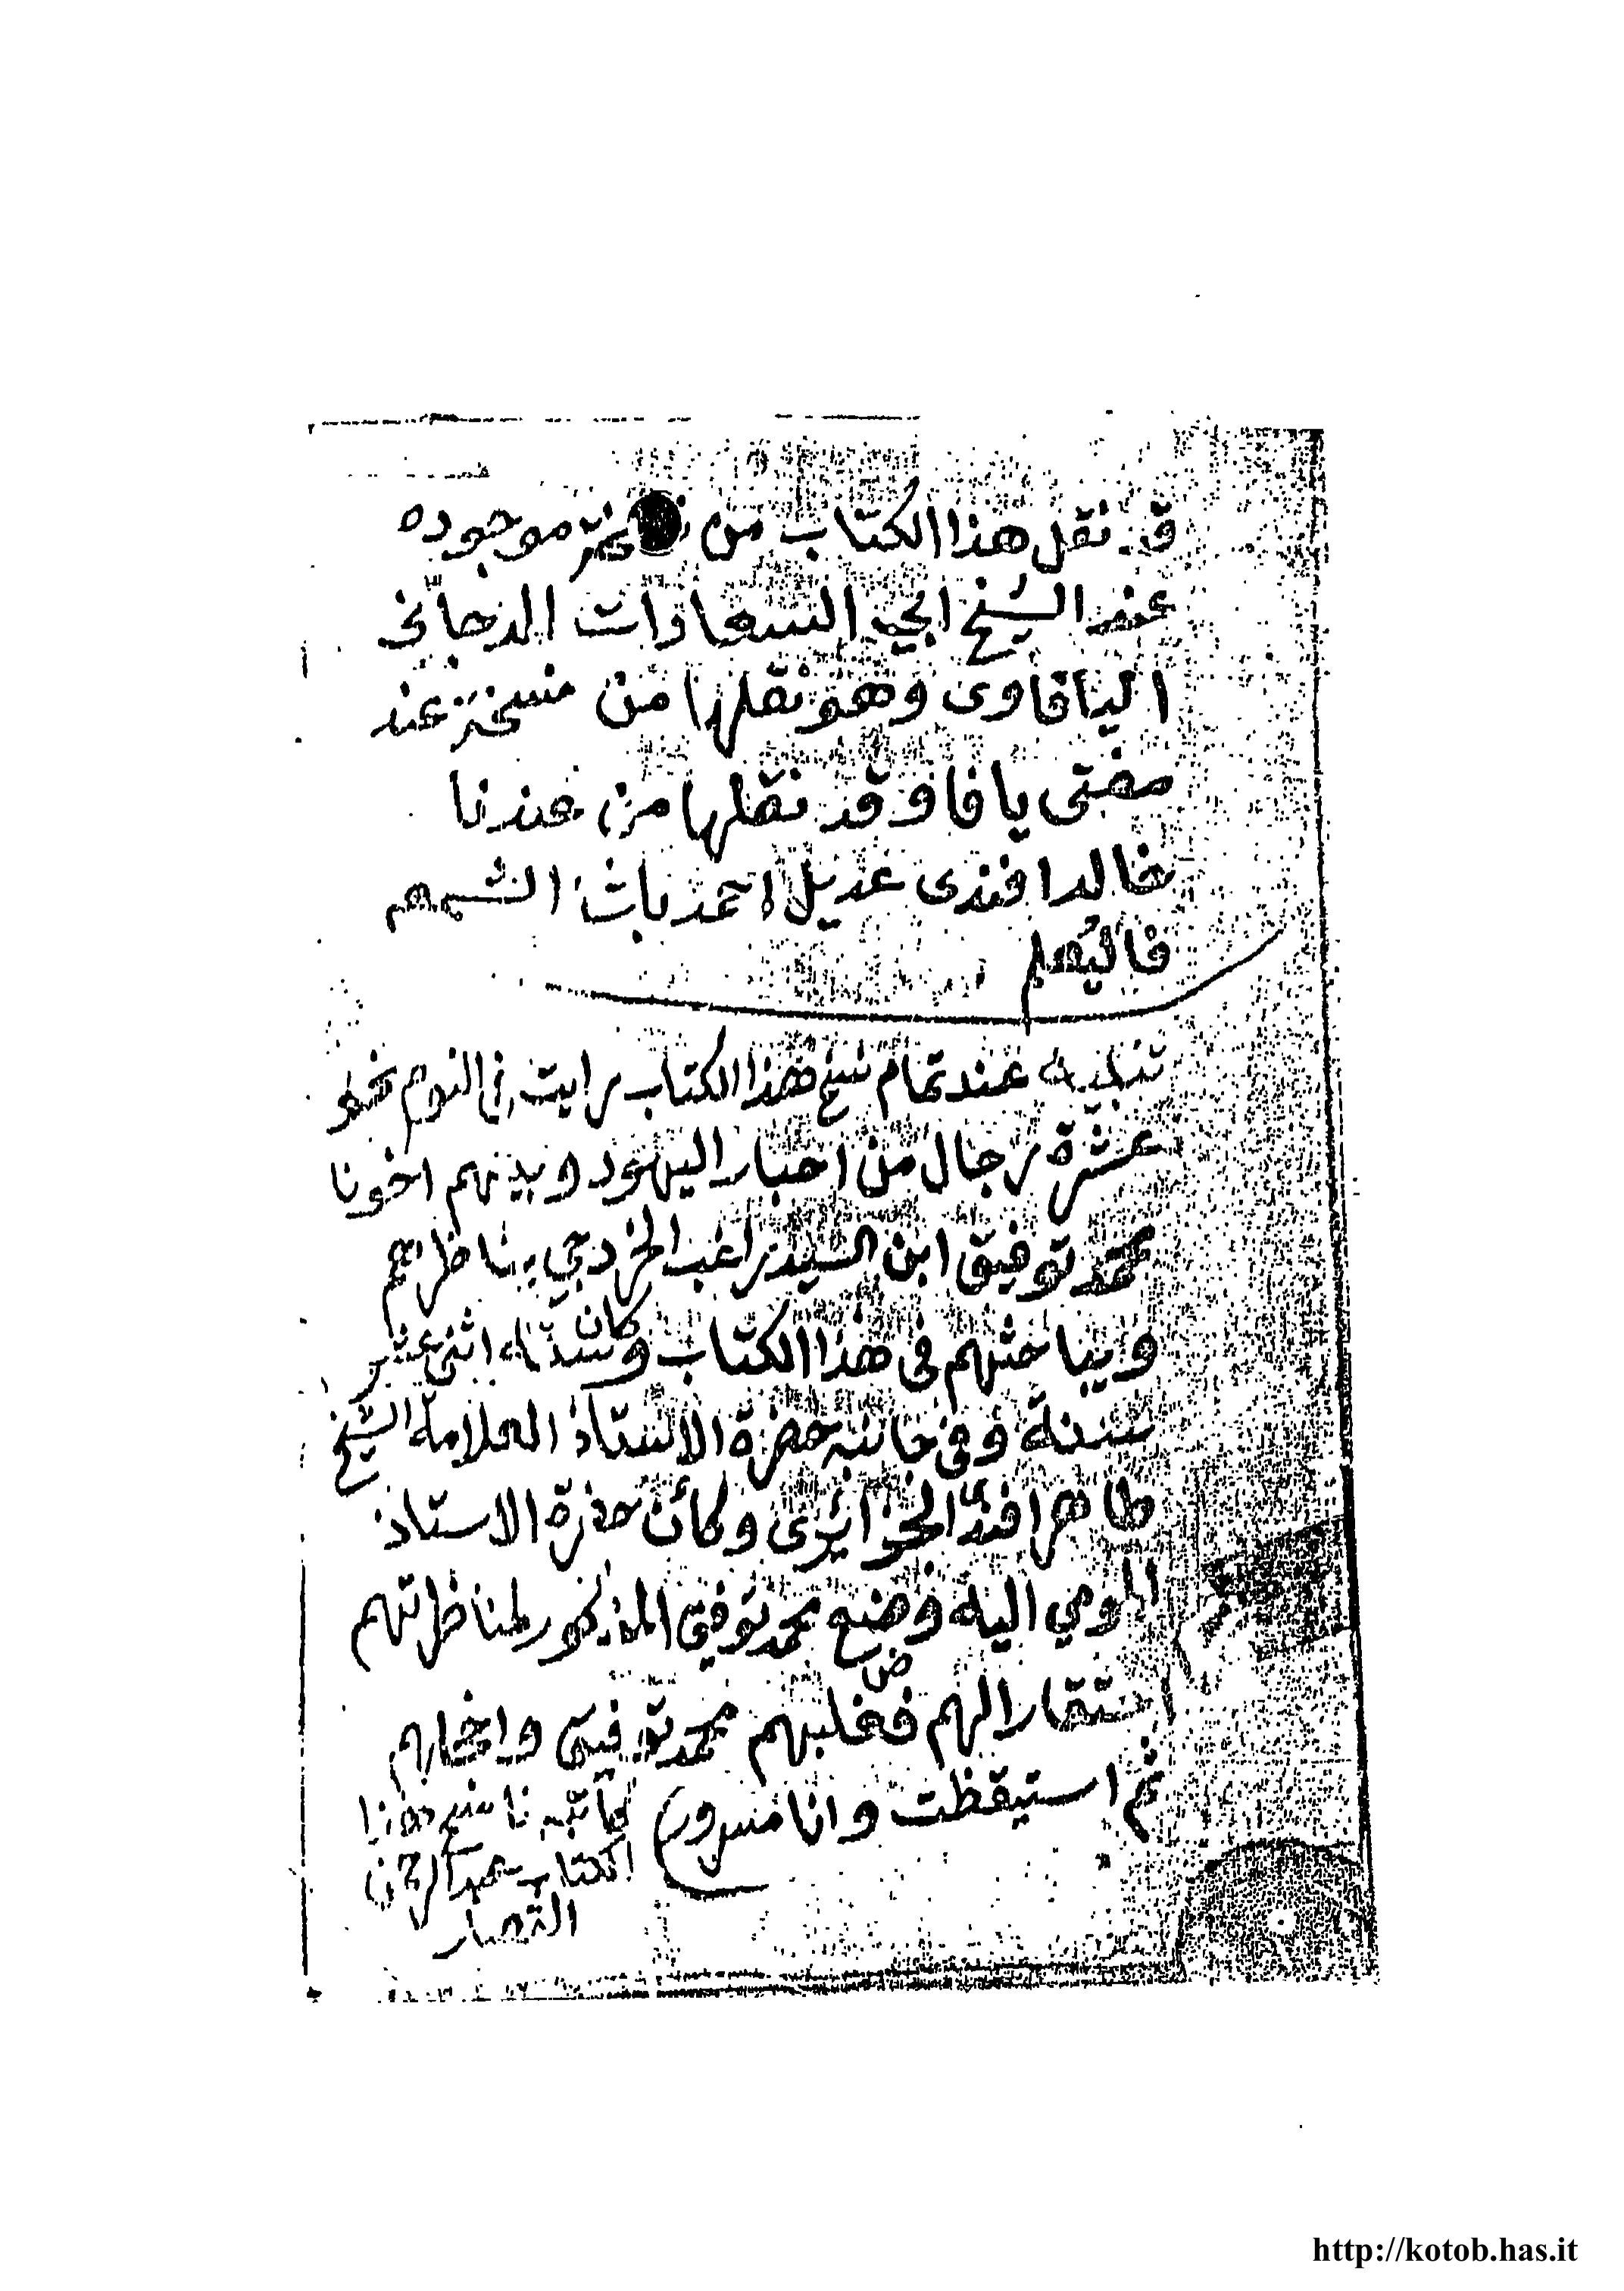 قد نقل هذا الكتاب من نسخة موجوده
عند الشيخ ابي السعادات الدجاني
اليافاوى وهو نقلها من نسخة عند
مفتى يافا وقد نقلها من عندنا
خالد افندى عديل احمد باشا الشمعه
فاليعلم
تنبيه عند تمام نسخ هذا الكتاب رايت في النوم نحو
عشرة رجال من احبار اليهود وبينهم اخونا
محمد توفيق ابن السيد راغب يناظرهم
ويباحثهم في هذا الكتاب وكان سنه اثنى عشر
سنة وفي جانبه حضرة الاستاذ العلامة الشيخ
طاهر افندى الجزائرى وكأن حضرة الاستاذ
المومي اليه وضع محمد توفيق المذكور لمناظرتهم
استقارا لهم فغلبهم محمد توفيق
ثم استيقظت وانا مسرور
كاتبه ناسخ هذا
الكتاب عبد الرحمن
القصار
http://kotob.has.it